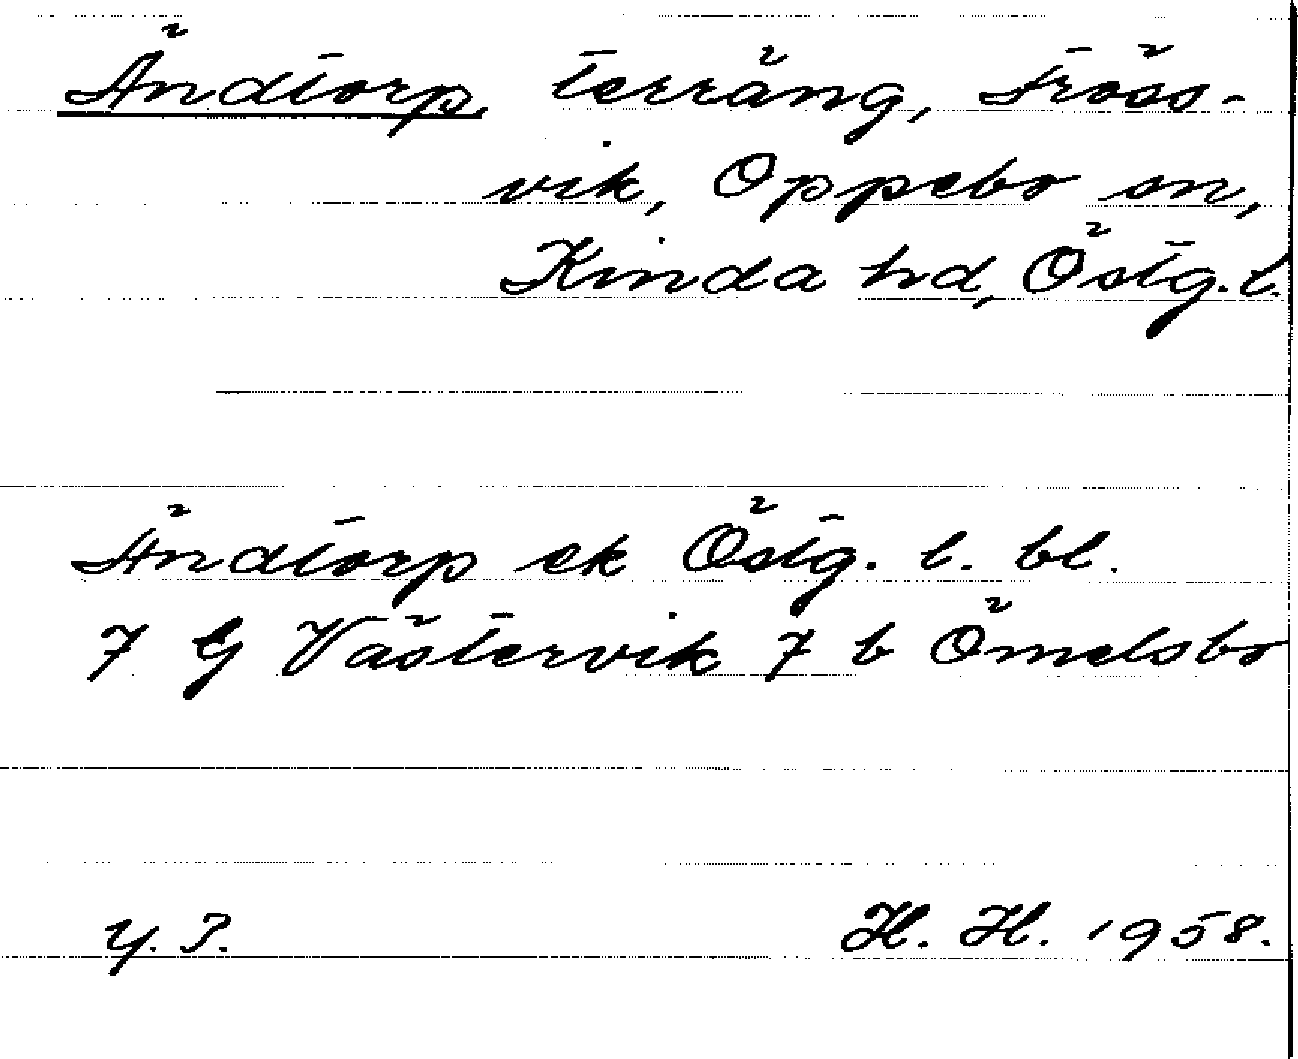 Ändtorp, terräng, Fröss-
vik, Oppebo sn,
Kinda hd, Östg. l.
Ändtorp ek Östg. l. bl.
7 G Västervik 7 b Ömelsbo
Y. P. H. H. 1958.